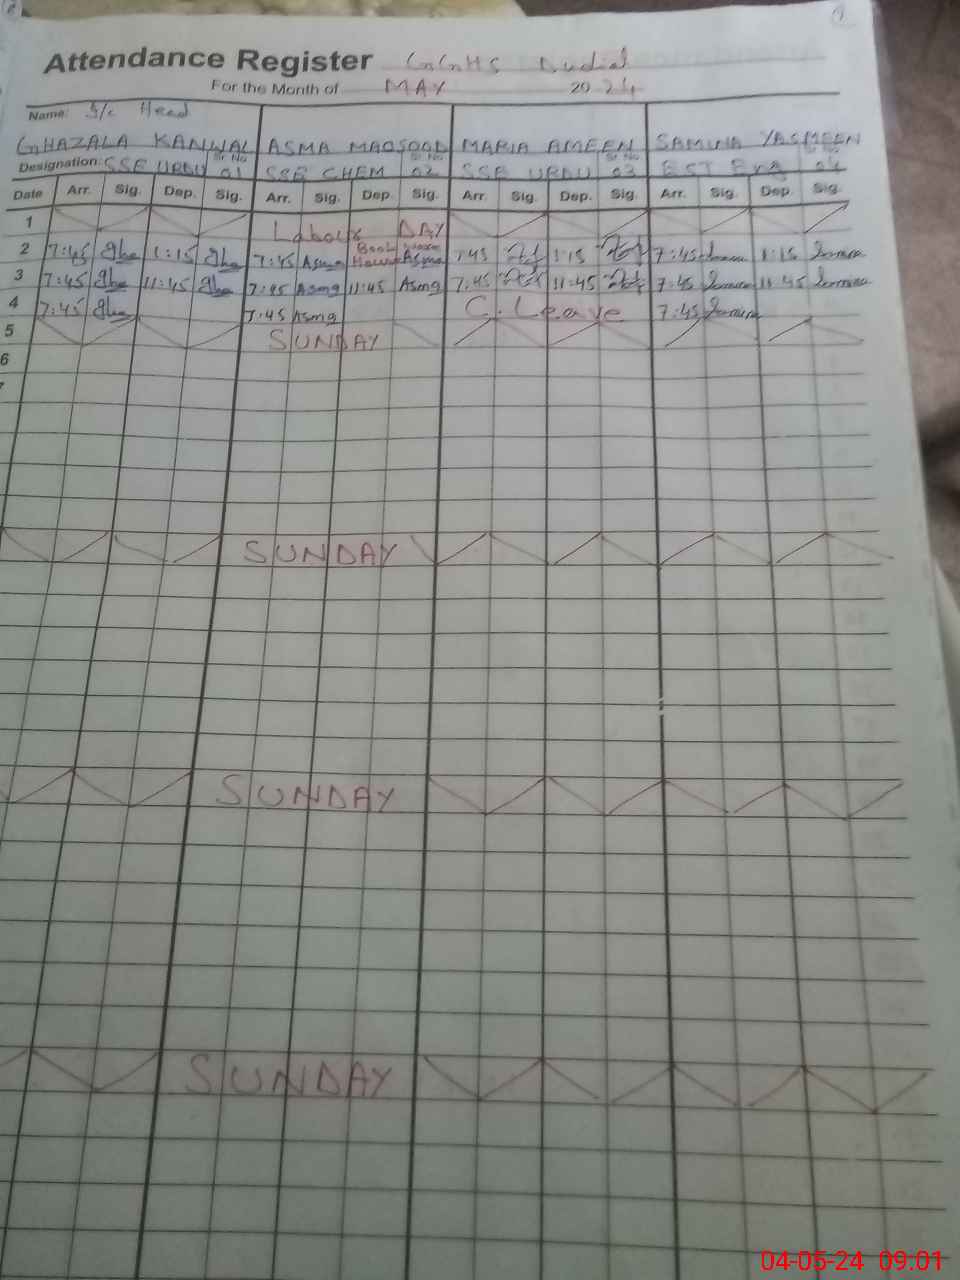 Attendance Register GGHS Dudial
For the Month of MAY 2024
Name: I/c Head
GHAZALA KANWAL ASMA MAQSOOD MARIA AMEEN SAMINA YASMEEN
Designation: SSE URDU Sr No 01 SSE CHEM Sr No 02 SSE URDU Sr No 03 EST Eng Sr No 04
Date Arr. Sig. Dep. Sig. Arr. Sig. Dep. Sig. Arr. Sig. Dep. Sig. Arr. Sig. Dep. Sig.
1 Labour DAY
2 7:45 1:15 7:45 Asma Asma 7:45 1:15 7:45 1:15
3 7:45 11:45 7:45 Asma 11:45 Asma 7:45 11:45 7:45 11:45
4 7:45 7:45 Asma C. Leave 7:45
5 SUNDAY
6
7
SUNDAY
SUNDAY
SUNDAY
04-05-24 09.01